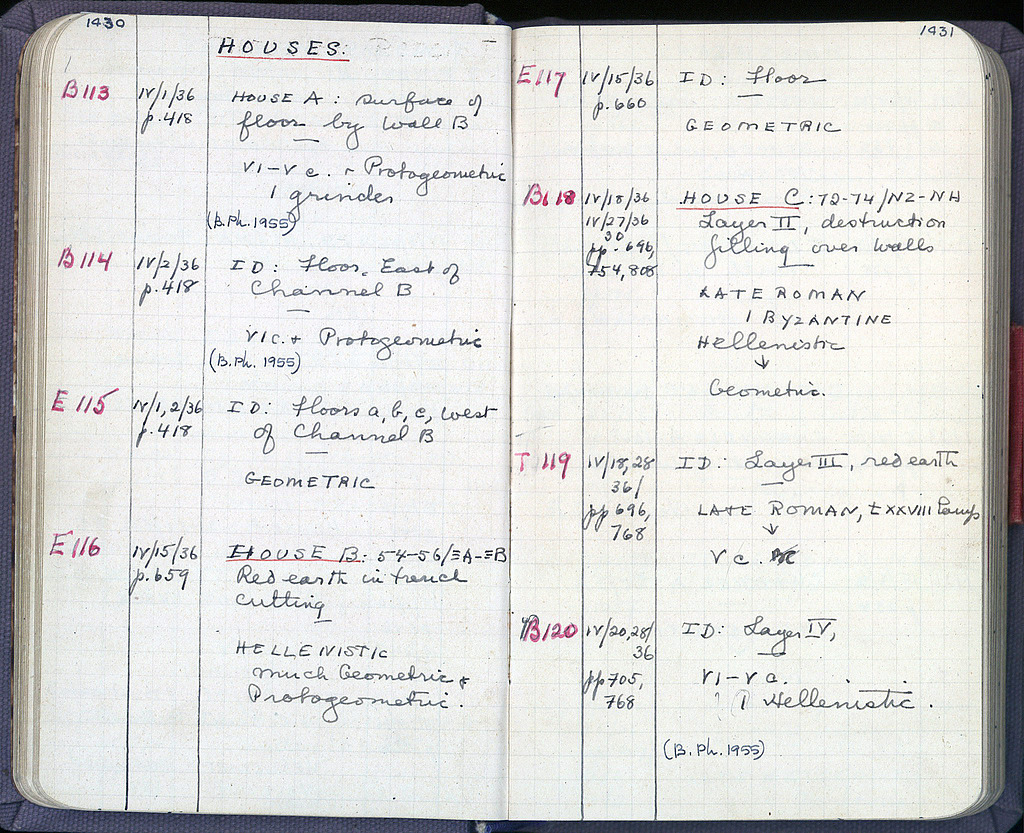 1430
HOUSES:
B113
IV/1/36
p.418
HOUSE A: surface of
floor by wall B
VI-V c. + Protogeometric
1 grinder
(B.Ph. 1955)
B114
IV/2/36
p.418
ID: Floor, East of
Channel B
VI c. + Protogeometric
(B.Ph. 1955)
E115
IV/1,2/36
p.418
ID: Floors a, b, c, west
of Channel B
GEOMETRIC
E116
IV/15/36
p.659
HOUSE B: 54-56/ΞA-ΞB
Red earth in trench
cutting
HELLENISTIC
much Geometric &
Protogeometric.
1431
E117
IV/15/36
p.660
ID: Floor
GEOMETRIC
B118
IV/18/36
IV/27/36
30
pp. 696,
754, 808
HOUSE C: 72-74/NZ-NH
Layer II, destruction
filling over walls
LATE ROMAN
1 BYZANTINE
Hellenistic
↓
Geometric.
T119
IV/18,28
36/
pp 696,
768
ID: Layer III, red earth
LATE ROMAN, t XXVIII lamp
↓
V c.
B120
IV/20,28/
36
pp 705,
768
ID: Layer IV,
VI-V c.
1 Hellenistic.
(B.Ph. 1955)